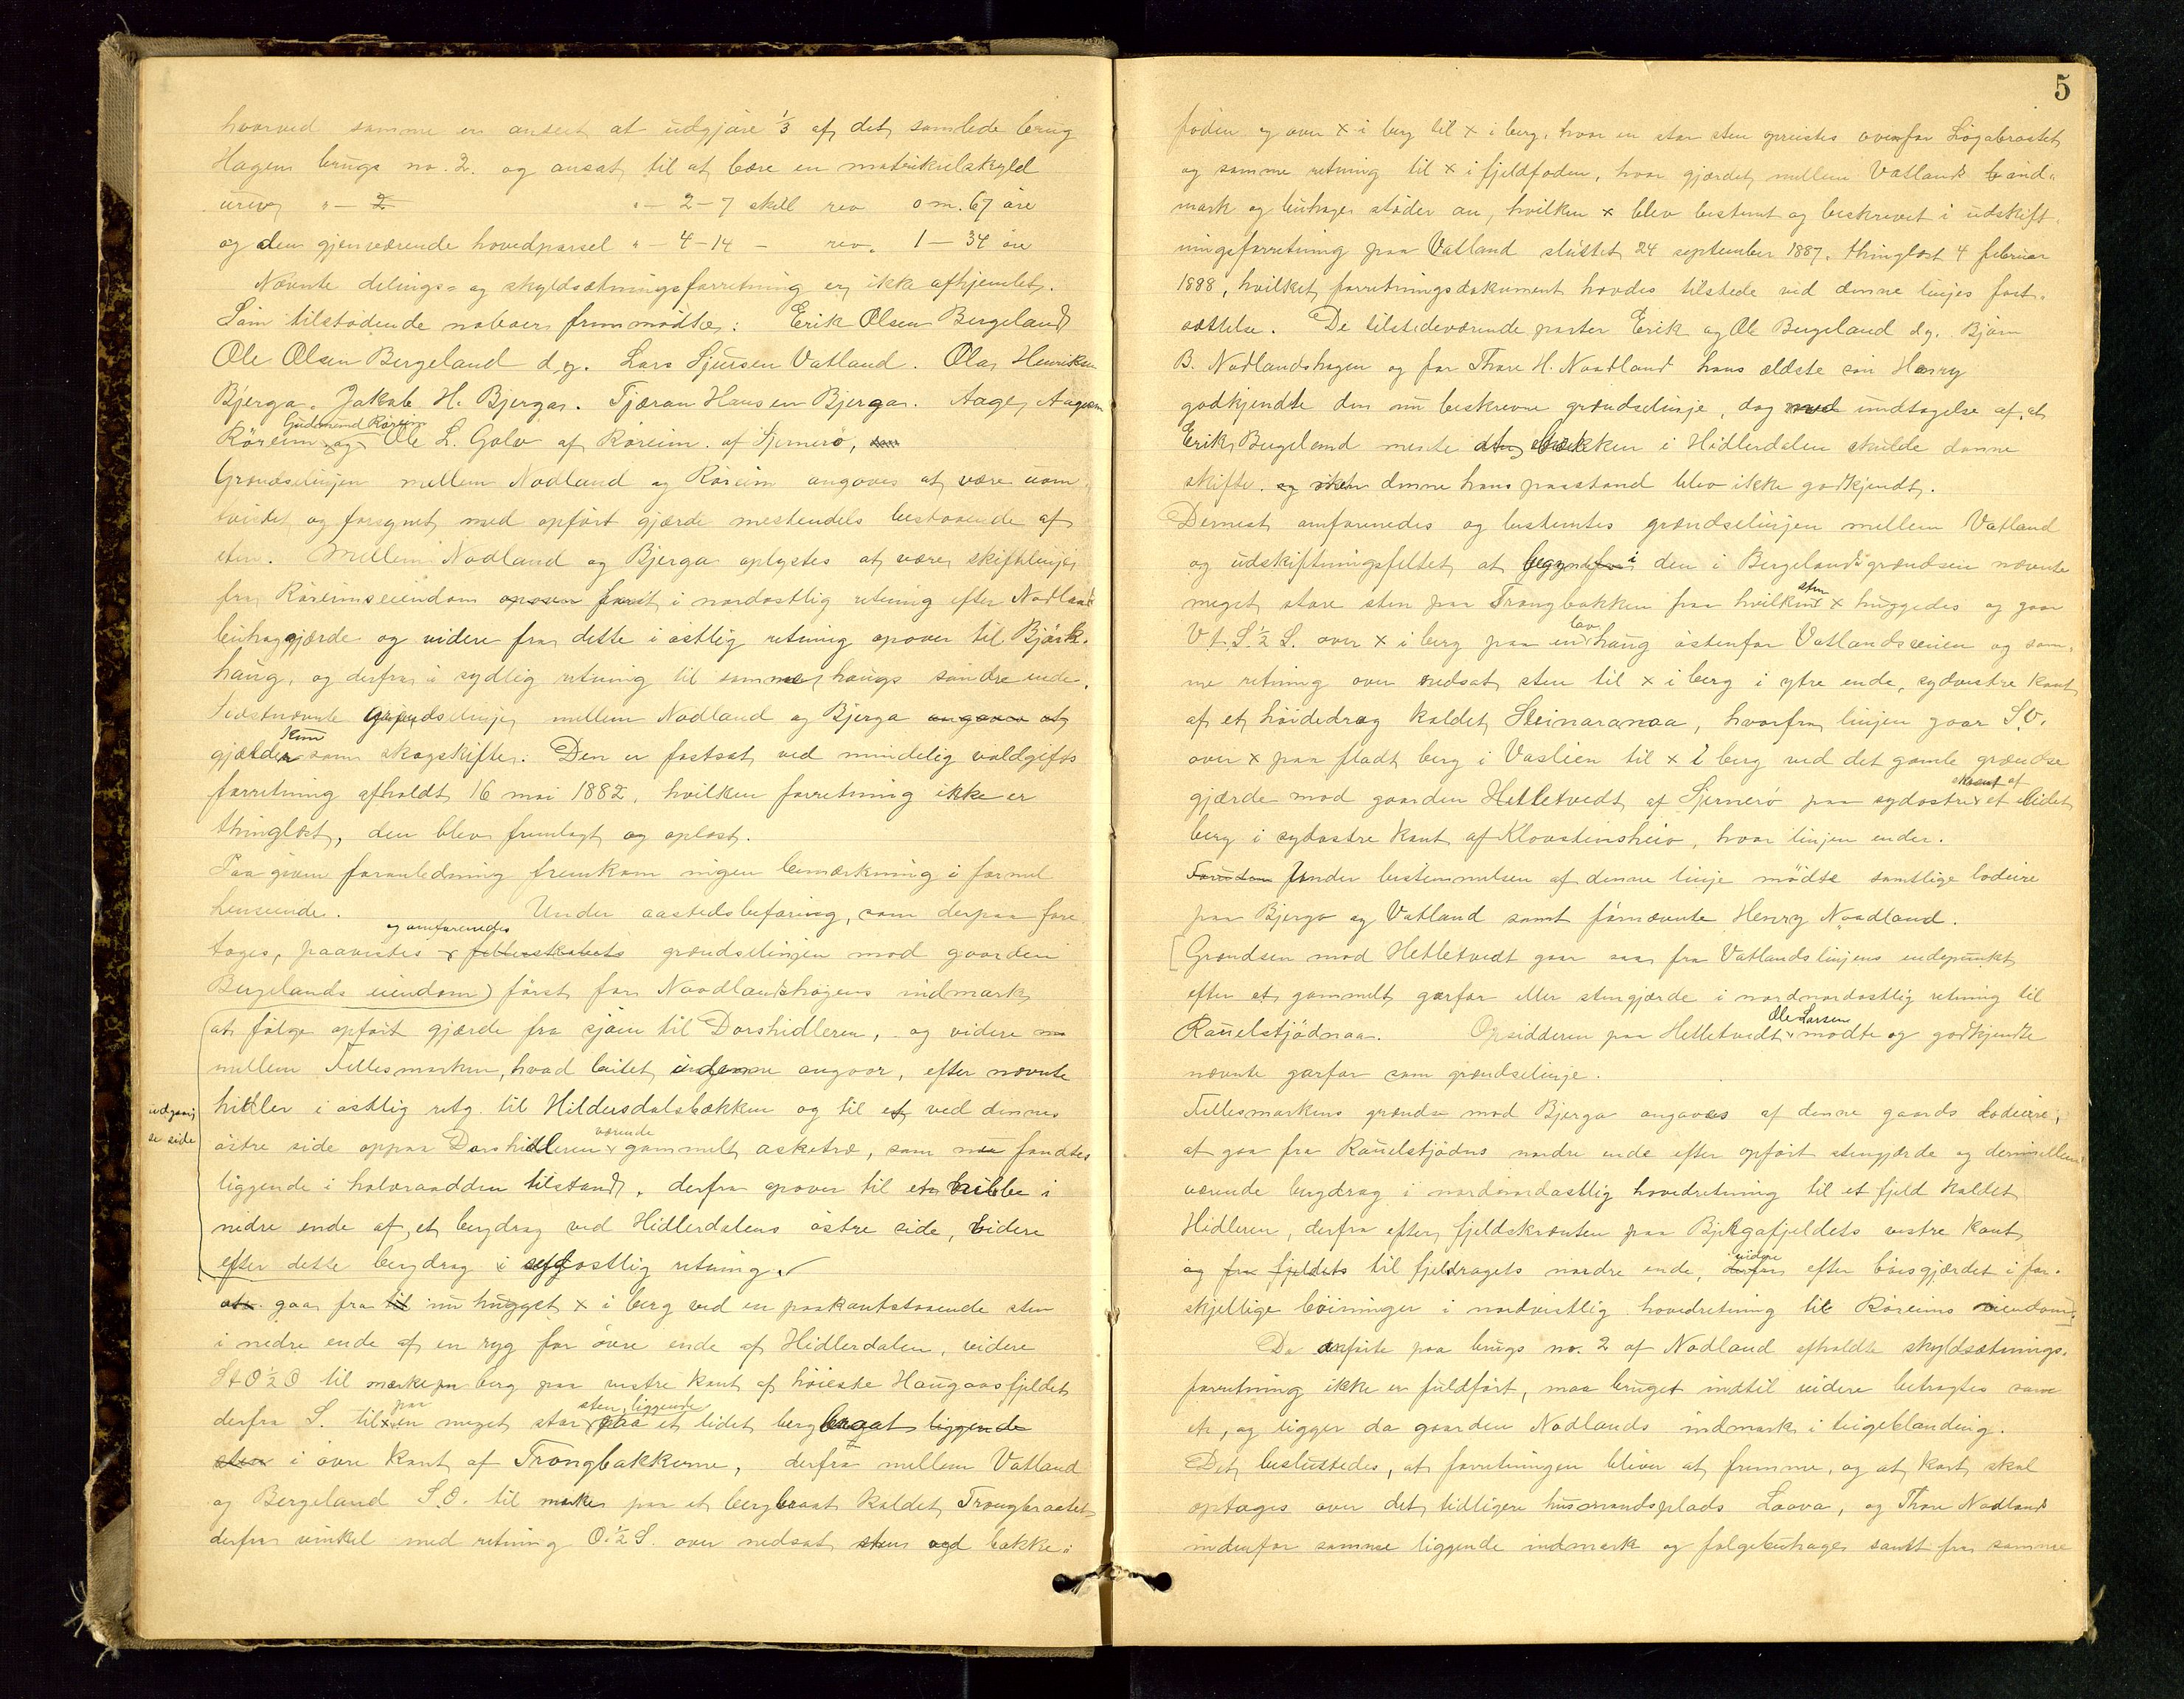 hvorved samme er anseet at udgjøre 1/3 af det samlede brug
Hagen brugs no. 2. og ansat til at bære en matrikulskyld
urev. "— 2 "— 2—7 skill rev 0 m. 67 øre
og den gjenværende hovedparsel "— 4—14 — rev. 1 — 34 øre
Nævnte delings- og skyldsætningsforretning er ikke afhjemlet.
Som tilstødende naboer fremmødte: Erik Olsen Bergeland
Ole Olsen Bergeland d.y. Lars Sjursen Vatland. Ola Henriksen
Bjerga. Jakob H. Bjerga. Tjæran Hansen Bjerga. Aage Aagesen
Gudmund Røreim
Røreim og Ole L. Golv af Røreim. af Sjernerø, som
Grændselinjen mellem Nodland og Røreim angaves at være uom
tvistet og forsynet med opført gjærde mestendels bestaaende af
sten. Mellem Nodland og Bjerga oplystes at være skiftelinje
fra Røreimseiendom opover først i nordostlig retning efter Nodland
buhaggjærde og videre fra dette i østlig retning opover til Bjørk-
haug, og derfra i sydlig retning til samme haugs søndre ende.
Sidstnævnte grændselinje mellem Nodland og Bjerga angaves at
kun
gjælder som skogskifte. Den er fastsat ved mindelig voldgifts
forretning afholdt 16 mai 1882, hvilken forretning ikke er
thinglæst, den blev fremlagt og oplæst.
Paa given foranledning fremkom ingen bemærkning i formel
henseende. Under aastedsbefaring, som derpaa fore
og omforenedes
toges, paavistes x fællesskabets grændselinjen mod gaarden
Bergelands eiendom) først for Nodlandshagens indmark
at følge opført gjærde fra sjøen til Dorshidleren, og videre
mellem Fellesmarken, hvad beitet i denne angaar, efter nævnte
hidler i østlig retg. til Hildersdalsbækken og til et ved dennes
værende
østre side oppaa Dorshidleren x gammelt asketræ, som nu fandtes
liggende i halvraadden tilstand, derfra opover til et kibbe i
nedre ende af et bergdrag ved Hidlerdalens østre side, videre
efter dette bergdrag i sydostlig retning.
udgaar,
se side
gaar fra til nu hugget x i berg ved en paakantstaaende sten
i nedre ende af en ryg for øvre ende af Hidlerdalen, videre
S t O ½ O til mærke paa berg paa vestre kant af høieste Haugaasfjeldet
paa sten, liggende
derfra S. til x en meget stor paa et lidet berg braat liggende
sten i øvre kant af Trongbakkerne, derfra mellem Vatland
og Bergeland S.O. til mærke paa et bergbraat kaldet Trongbraatet
derfra vinkel med retning O. ½ S. over nedsat sten ved bakke-
5
foden og over x i berg til x i berg, hvor en stor sten opreistes ovenfor Løgabraatet
og samme retning til x i fjeldfoden, hvor gjærdet mellem Vatlands ind-
mark og buhage støder an, hvilken x blev bestemt og beskrevet i udskift-
ningsforretning paa Vatland sluttet 24 september 1887. thinglæst 4 februar
1888, hvilket forretningsdokument havdes tilstede ved denne linjes fast-
sættelse. De tilstedeværende parter Erik og Ole Bergeland d.y. Bjørn
B. Nodlandshagen og for Thore H. Nodland hans ældste søn Henry
godkjendte den nu beskrevne grændselinje, dog med undtagelse af, at
Erik Bergeland mente at bækken i Hidlerdalen skulde danne
skifte. denne hans paastand blev ikke godkjendt.
Dernæst omforenedes og bestemtes grændselinjen mellem Vatland
og udskiftningsfeltet at begynde i den i Bergelandsgrændsen nævnte
sten
meget store sten paa Trongbakken fra hvilken x huggedes og gaar
lav
V.t.S.½ S. over x i berg paa en haug østenfor Vatlandsveien og sam-
me retning over nedsat sten til x i berg i ytre ende, sydvestre kant
af et høidedrag kaldet Steinaranaa, hvorfra linjen gaar S.V.
over x paa fladt berg i Vaslien til x i berg ved det gamle grændse
skaaret af
gjærde mod gaarden Hetletvedt af Sjernerø paa sydøstre et lidet
berg i sydøstre kant af Klovsteinsheio, hvor linjen ender.
Foruden Under bestemmelsen af denne linje mødte samtlige lodeiere
paa Bjerga og Vatland samt førnævnte Henry Nodland.
[Grændsen mod Hetletvedt gaar saa fra Vatlandslinjens endepunkt
efter et gammelt garfar eller stengjærde i nordnordostlig retning til
Ole Larsen
Rauelstjødnaa. Opsidderen paa Hetletvedt mødte og godkjendte
nævnte garfar som grændselinje.
Fellesmarkens grænda mod Bjerga angaves af denne gaards lodeiere,
at gaa fra Rauelstjødns nordre ende efter opført stengjærde og derimellem
værende bergdrag i nordnordostlig hovedretning til et fjeld kaldet
Hidleren, derfra efter fjeldskrænten paa Bjergafjeldets vestre kant
videre
og fra fjeldets til fjeldragets nordre ende, derfra efter bøsgjærdet i for-
skjellige bøininger i nordvestlig hovedretning til Røreims eiendom].
Da anførte paa brugs no. 2 af Nodland afholdte skyldsætnings-
forretning ikke er fuldført, maa bruget indtil videre betragtes som
et, og ligger da gaarden Nodlands indmark i teigeblanding.
Det besluttedes, at forretningen bliver at fremme, og at kart skal
optages over det tidligere husmandsplads Laava, og Thore Nodlands
indenfor samme liggende indmark og følgebuhage samt fra samme